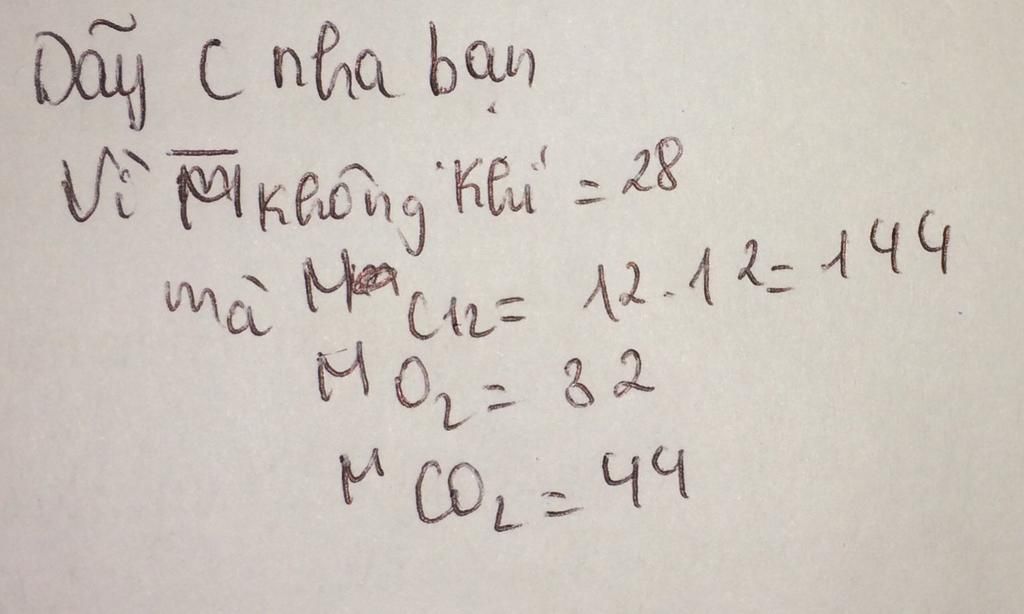 Dãy C nha bạn
Vì M̅ không khí = 28
mà M C12 = 12.12 = 144
M O₂ = 32
M CO₂ = 44